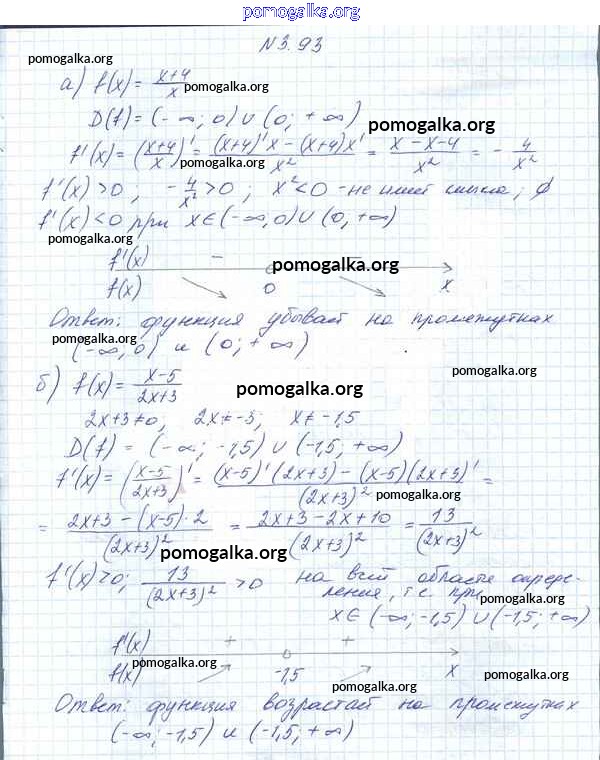 pomogalka.org
№3.93
pomogalka.org
а) f(x) = (x+4)/x pomogalka.org
D(f) = (-∞; 0) ∪ (0; +∞)
pomogalka.org
f'(x) = ((x+4)/x)' = ((x+4)'x - (x+4)x')/x² = (x-x-4)/x² = - 4/x²
f'(x) > 0; - 4/x² > 0; x² < 0 - не имеет смысла; ∅
f'(x) < 0 при x ∈ (-∞, 0) ∪ (0, +∞)
pomogalka.org
f'(x) - pomogalka.org -
f(x) ↘ 0 ↘ x
Ответ: функция убывает на промежутках
pomogalka.org
(-∞, 0) и (0; +∞)
pomogalka.org
б) f(x) = (x-5)/(2x+3) pomogalka.org
2x+3≠0, 2x≠-3; x≠-1,5
D(f) = (-∞; -1,5) ∪ (-1,5; +∞)
f'(x) = ((x-5)/(2x+3))' = ((x-5)'(2x+3) - (x-5)(2x+3)')/(2x+3)² =
pomogalka.org
= (2x+3 - (x-5)·2)/(2x+3)² = (2x+3-2x+10)/(2x+3)² = 13/(2x+3)²
pomogalka.org
f'(x) > 0; 13/(2x+3)² > 0 на всей области опреде-
ления, т.е. при
pomogalka.org
x ∈ (-∞; -1,5) ∪ (-1,5; +∞)
f'(x) + +
pomogalka.org
f(x) ↗ -1,5 ↗ x
pomogalka.org
pomogalka.org
Ответ: функция возрастает на промежутках
pomogalka.org
(-∞; -1,5) и (-1,5; +∞)